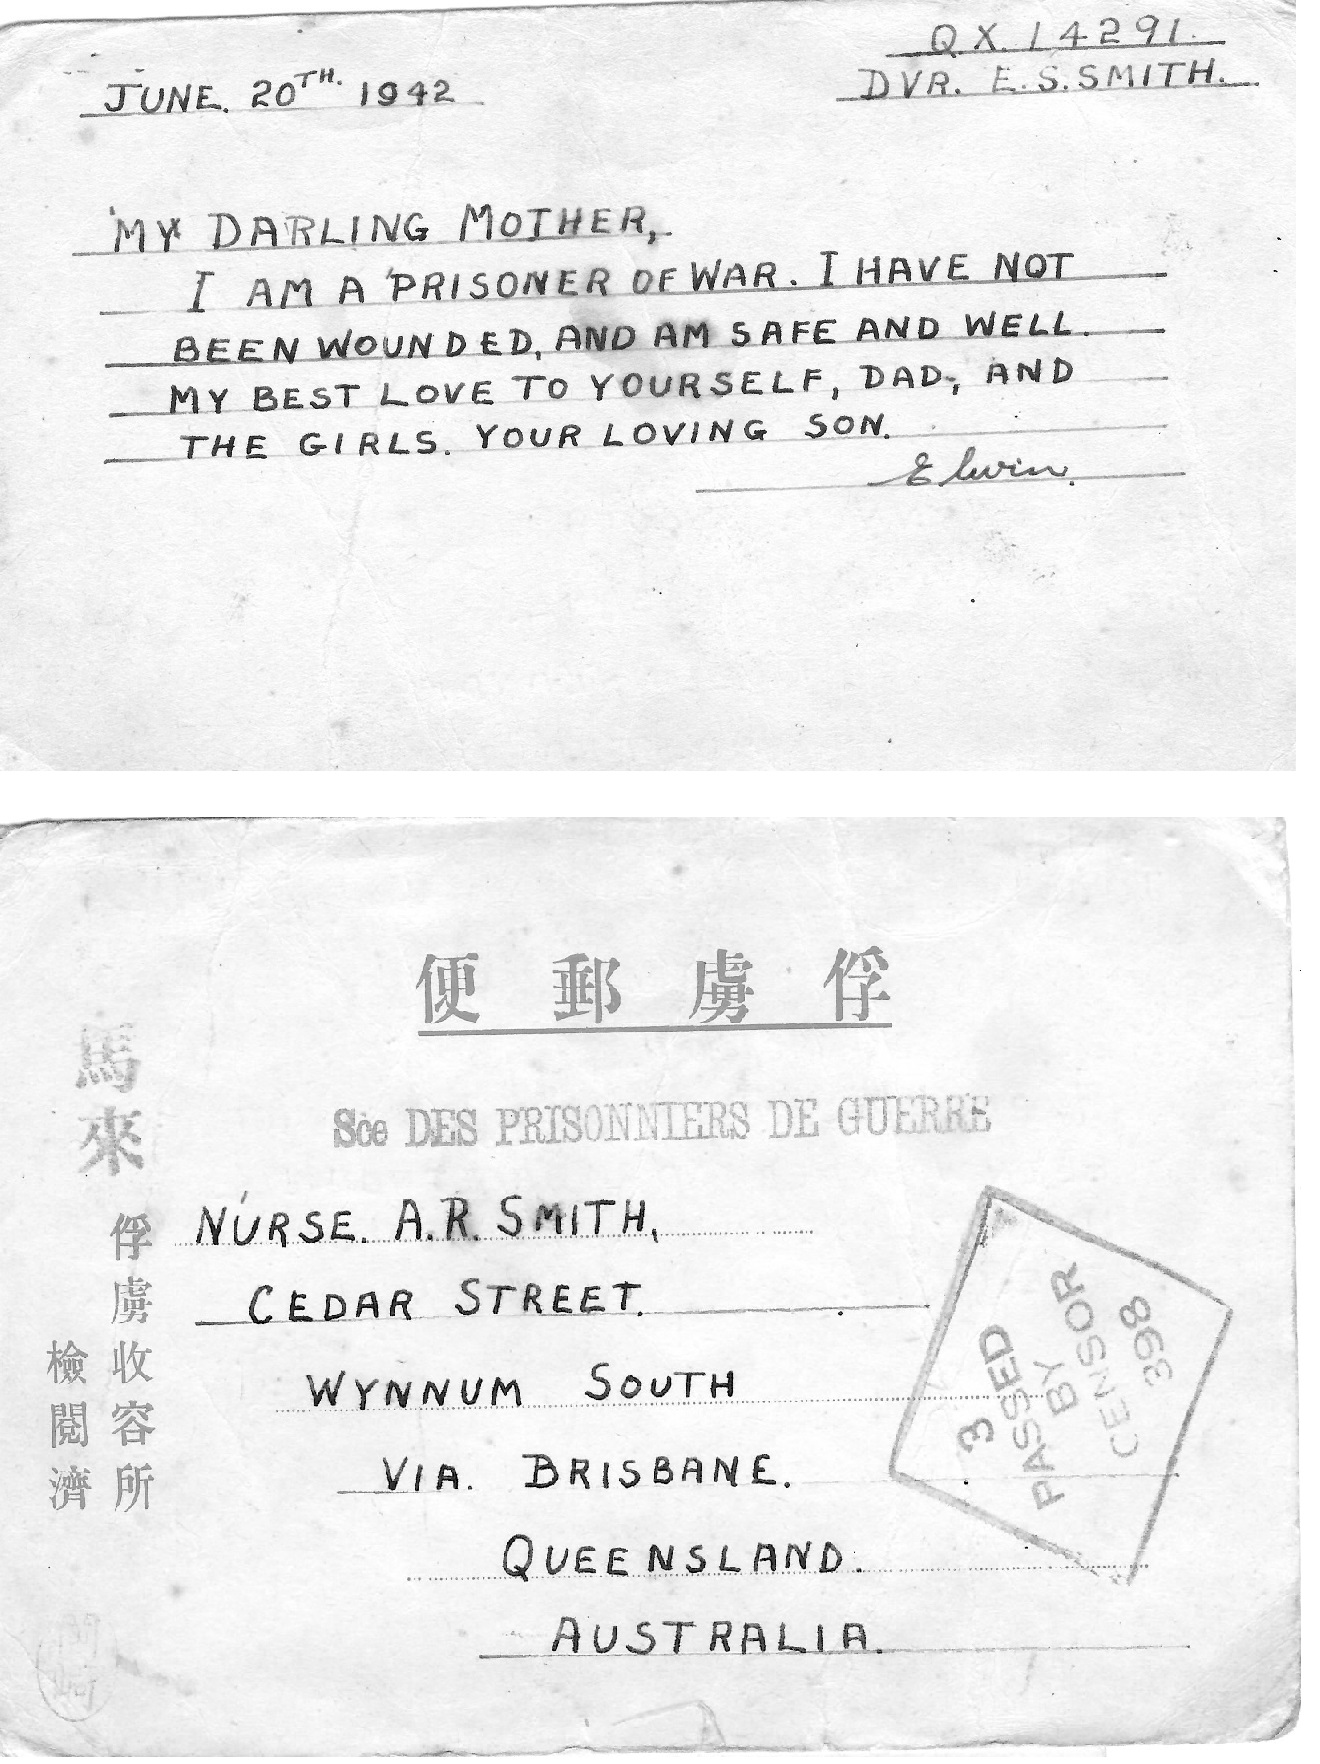 QX.14291.
JUNE. 20TH. 1942
DVR. E.S.SMITH.
MY DARLING MOTHER,
I AM A PRISONER OF WAR. I HAVE NOT
BEEN WOUNDED, AND AM SAFE AND WELL.
MY BEST LOVE TO YOURSELF, DAD, AND
THE GIRLS. YOUR LOVING SON.
Elwin.
便郵虜俘
馬來
俘虜收容所
檢閲濟
Sce DES PRISONNIERS DE GUERRE
NURSE. A.R. SMITH,
CEDAR STREET.
WYNNUM SOUTH
VIA. BRISBANE.
QUEENSLAND.
AUSTRALIA.
3
PASSED
BY
CENSOR
398